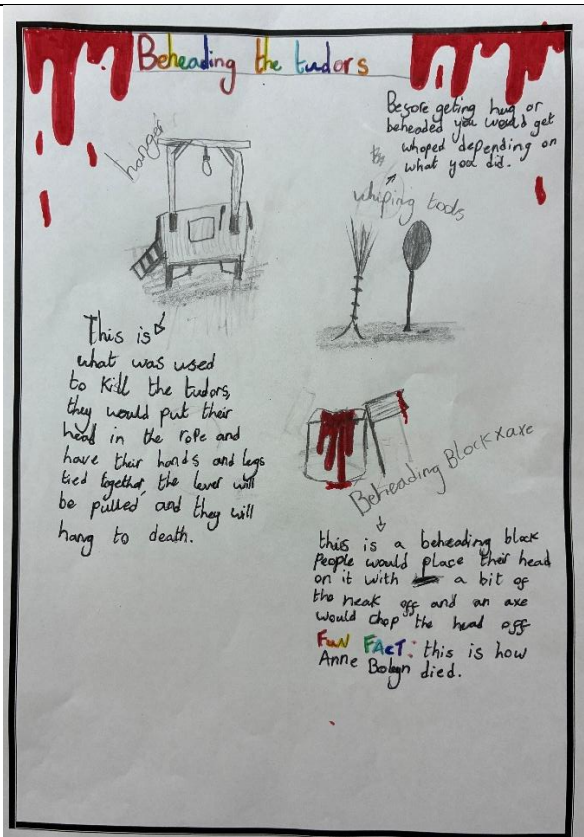 Beheading the tudors
hanger
Before geting hug or
beheaded you would get
whoped depending on
what you did.
whiping tools
This is
what was used
to kill the tudors,
they would put their
head in the rope and
have their hands and legs
tied together, the lever will
be pulled, and they will
hang to death.
Beheading Block x axe
this is a beheading block
People would place their head
on it with a bit of
the neak off and an axe
would chop the head off
FuN FAcT: this is how
Anne Boleyn died.